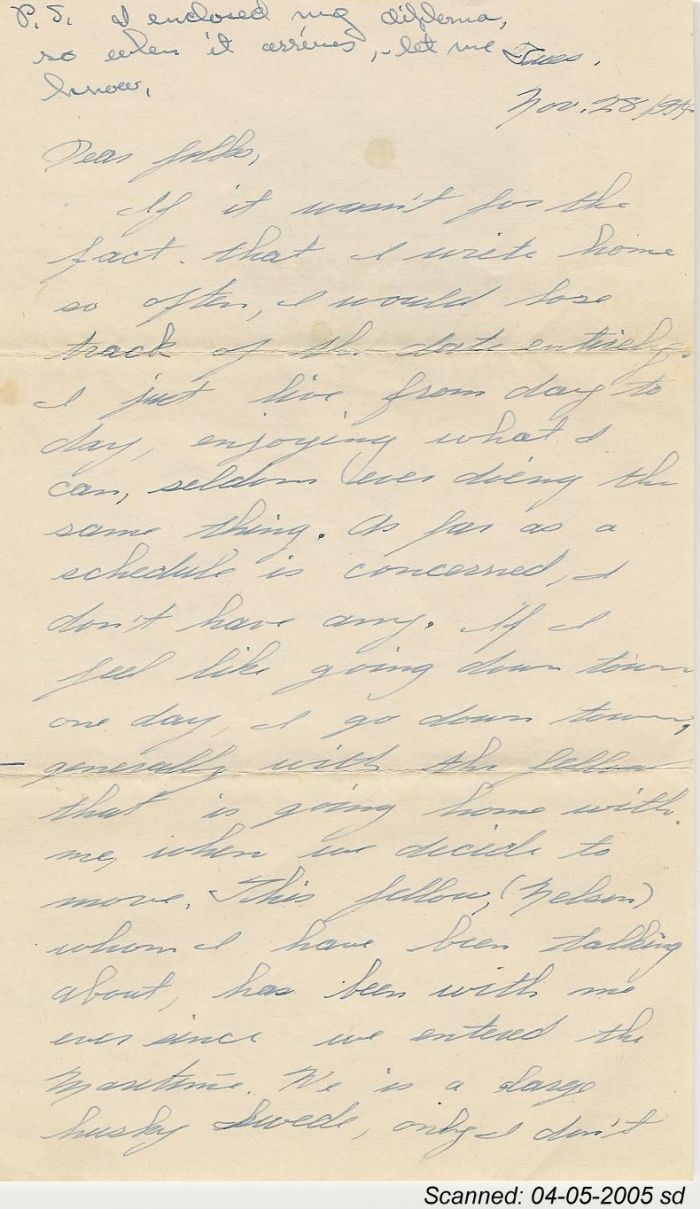 P.S. I enclosed my diploma,
so when it arrives, - let me
know.
Tues.
Nov. 28, 1944
Dear folks,
If it wasn't for the
fact that I write home
so often, I would lose
track of the date entirely.
I just live from day to
day, enjoying what I
can, seldom ever doing the
same thing. As far as a
schedule is concerned, I
don't have any. If I
feel like going down town
one day, I go down town,
generally with the fellow
that is going home with
me, when we decide to
move. This fellow, (Nelson)
whom I have been talking
about, has been with me
ever since we entered the
Maritime. He is a large
husky Swede, only I don't
Scanned: 04-05-2005 sd